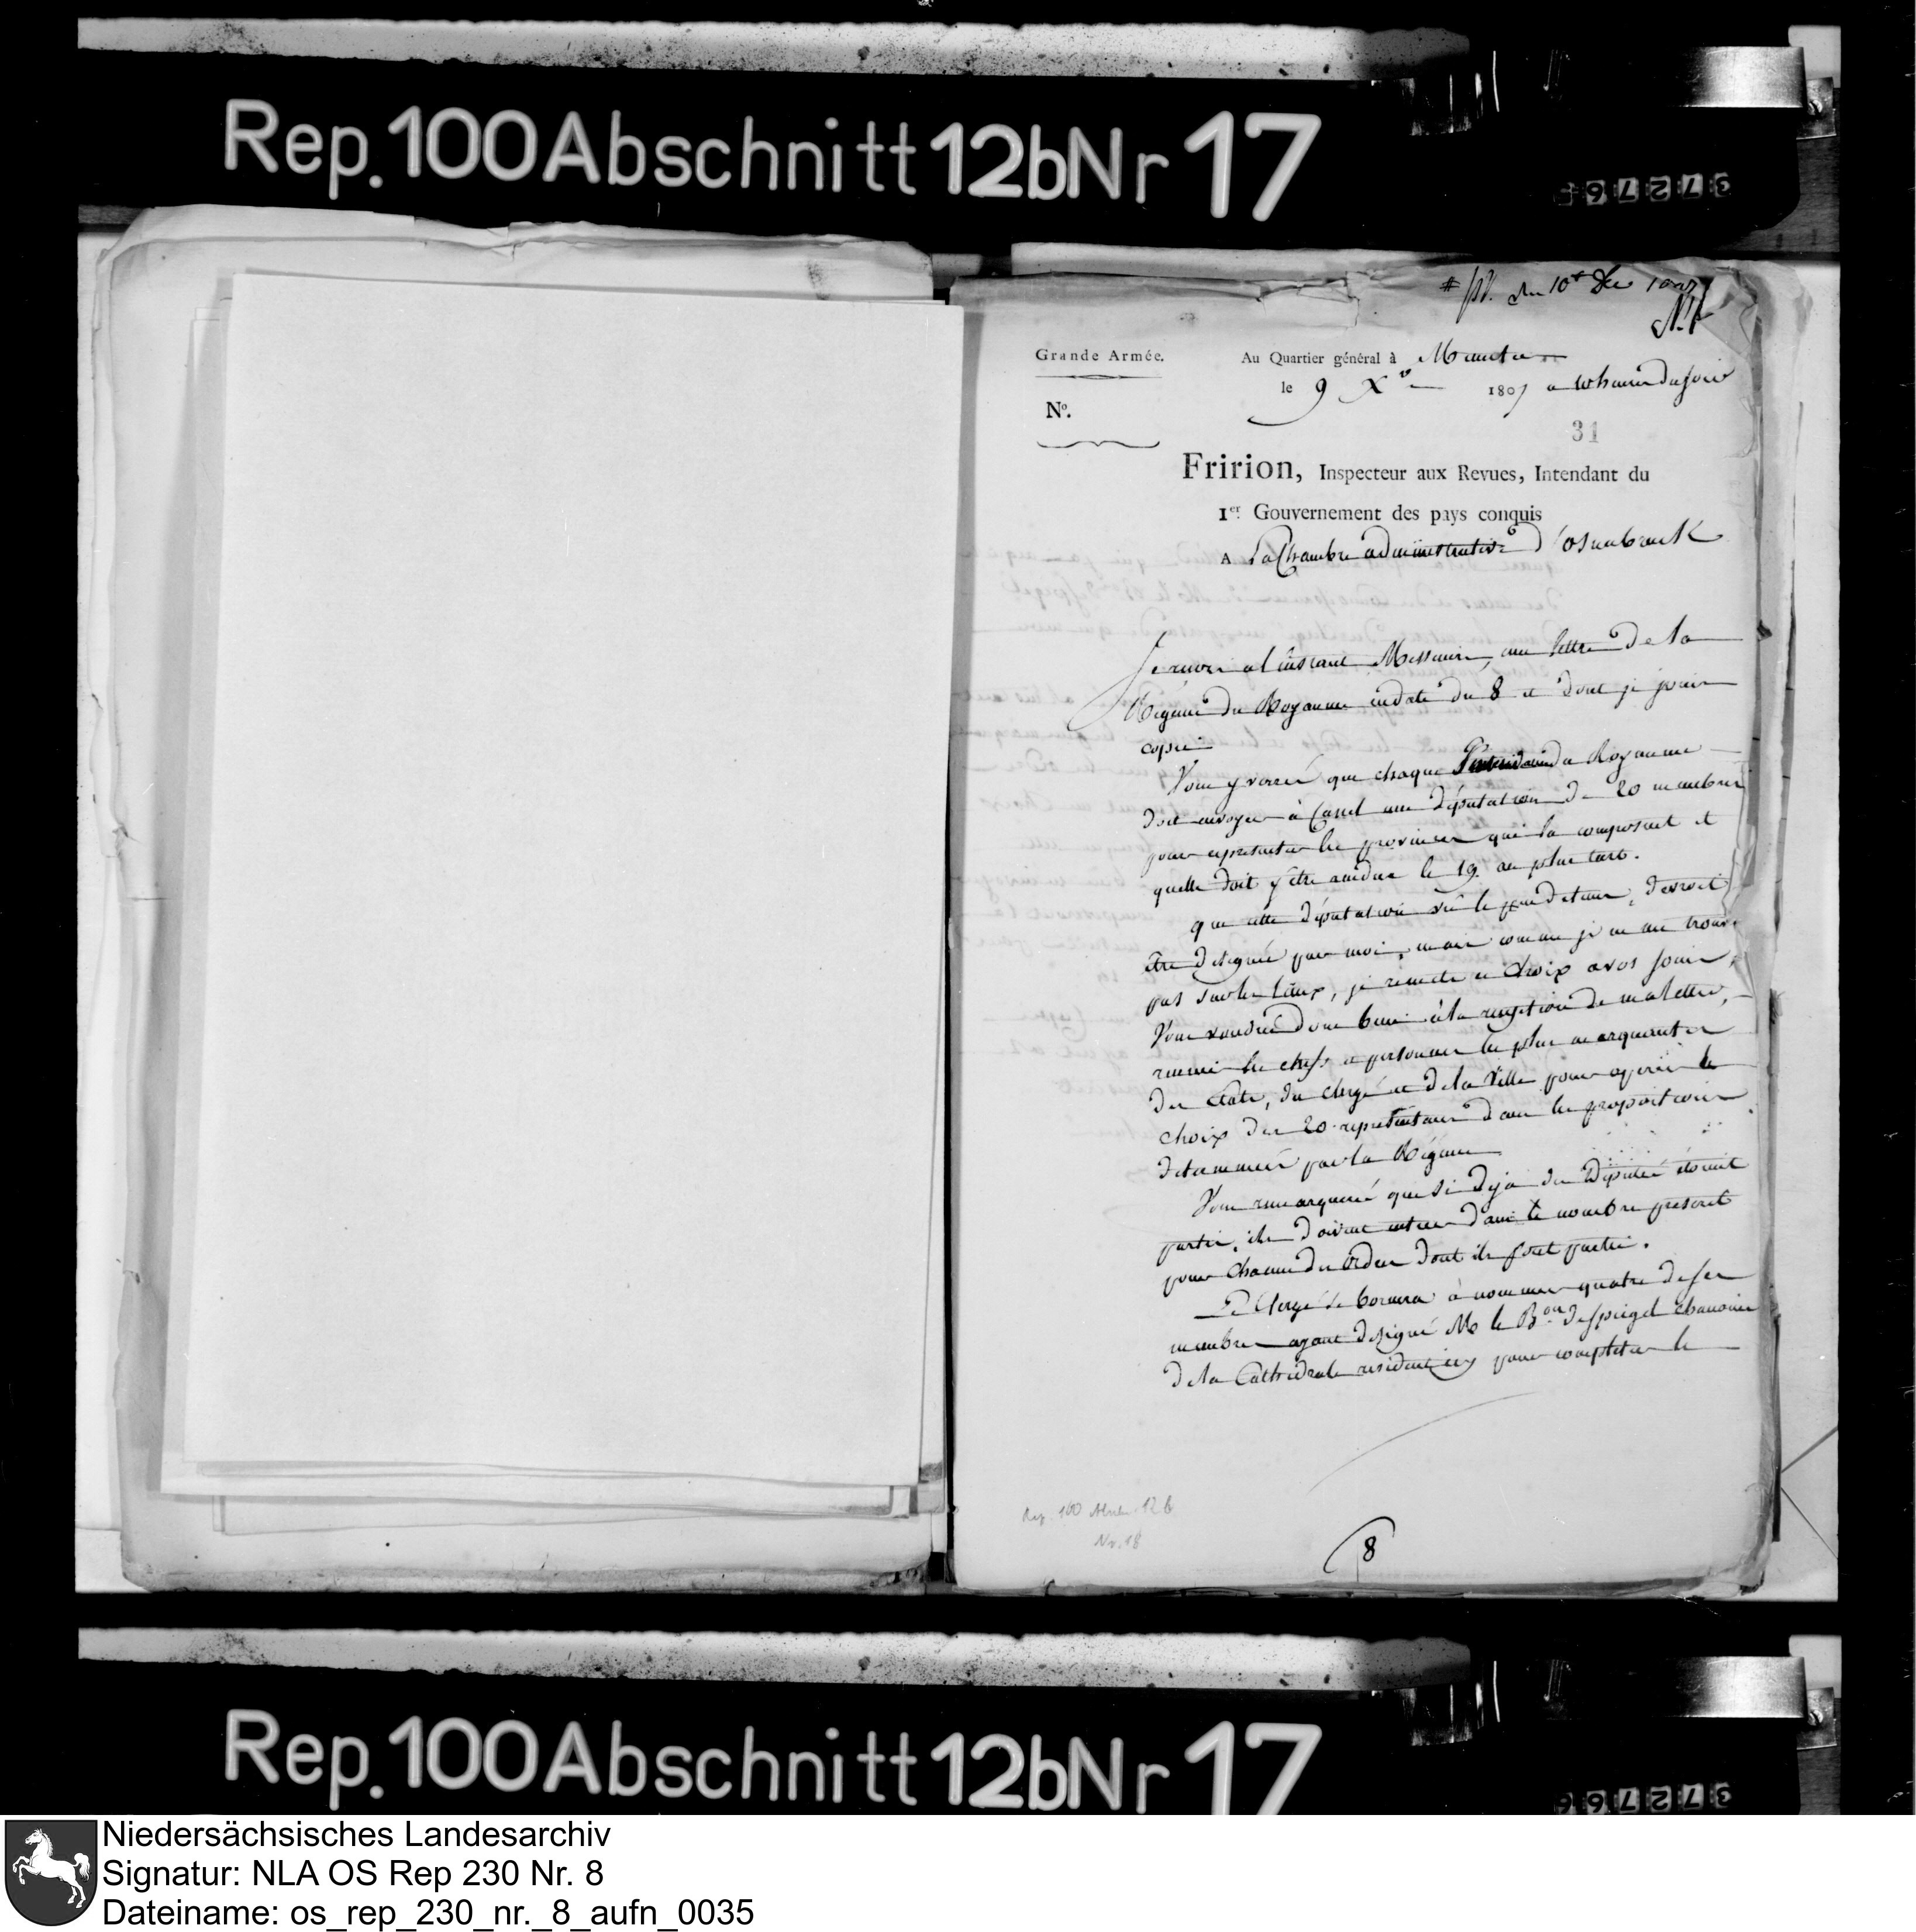 Rep. 100 Abschnitt 12b Nr 17
37276
du 10t Dec
Grande Armée.
Au Quartier général à Munster
le 9 Xre 1807 a 10 heures du soir
No.
31
Fririon, Inspecteur aux Revues, Intendant du
1er Gouvernement des pays conquis
A la Chambre administrative d'osnabruck
Je recois al'instant Messieurs, une lettre de la
Régence du Royaume endate du 8 et dont je joins
copie.
Vous y verrez que chaque du Royaume
doit envoyer à Cassel une députation de 20 membres
pour représenter les provinces qui la composent et
quelle doit y être rendue le 19 au plus tard.
que cette députation vû le peu de tems, devroit
être designée par moi, mais comme je ne me trouve
pas sur les lieux, je remets ce choix a vos soins,
Vous voudrez donc bien à la reception de ma lettre,
reunir les chefs et personnes les plus marquantes
des Etats, du clergé et de la Ville pour operer le
choix des 20 representans dans les proportions
determinées par la Régence
Vous remarquerez que si deja des Députés étoient
partis, ils doivent entrer dans le nombre prescrit
pour chacun des ordres dont ils font partie.
Le Clergé se bornera à nommer quatre de ses
membres ayant designé M. le Bon de Spiegel chanoine
de la Cathédrale pour completer le
Rep. 100 Abschn. 12 b
Nr. 18
8
Rep. 100 Abschnitt 12b Nr 17
Niedersächsisches Landesarchiv
Signatur: NLA OS Rep 230 Nr. 8
Dateiname: os_rep_230_nr._8_aufn_0035